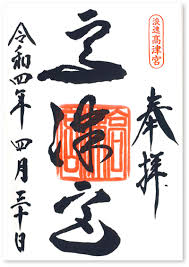 浪速高津宮
奉拝
高津宮
令和四年四月三十日